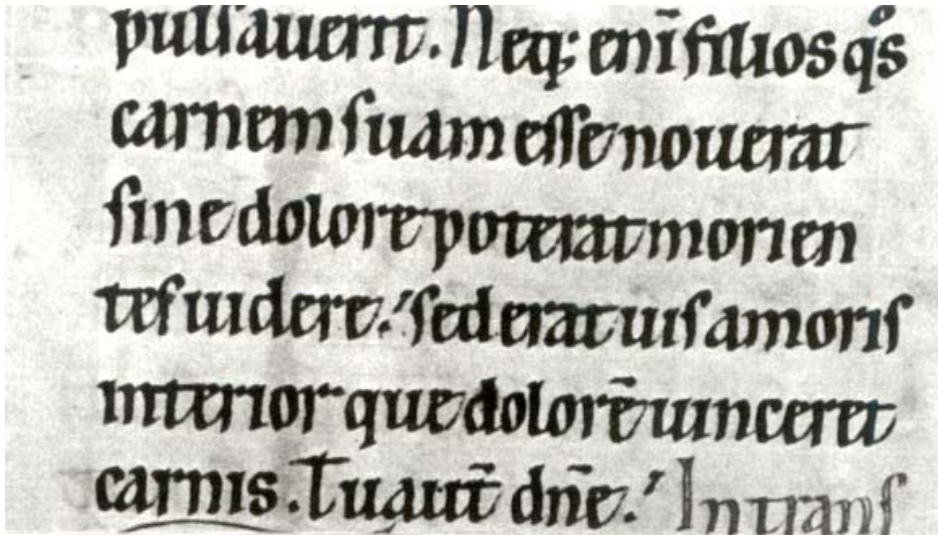 pulſauerit. Neq; enī filios qͦs
carnem ſuam eſſe nouerat
ſine dolore poterat morien
teſ uidere. ſed erat uiſ amoriſ
interior que dolorē uinceret
carnis. Tu aut̄ dn̄e. In tranſ